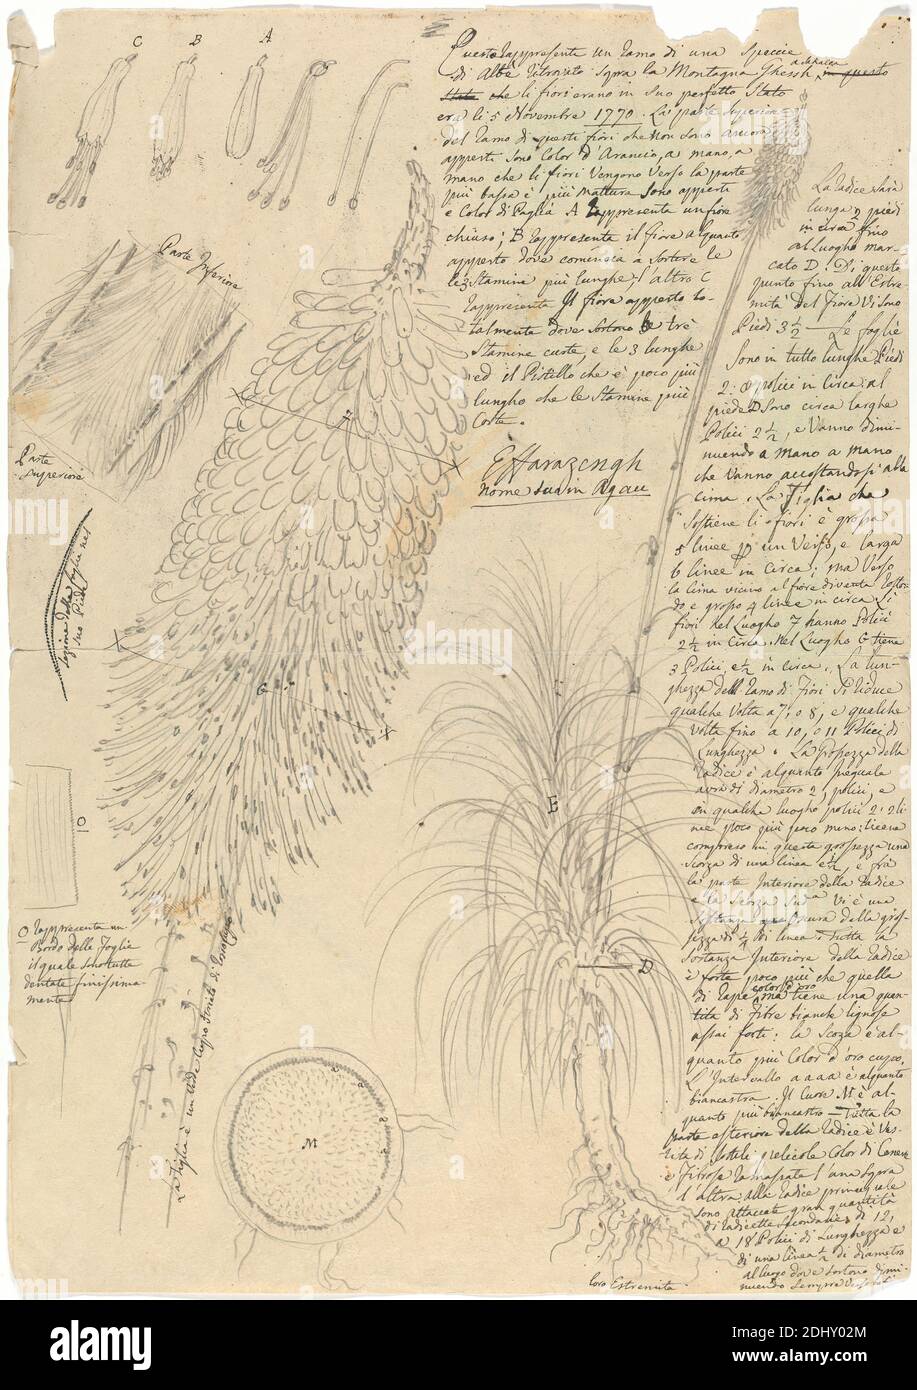 C B A
Questo Rappresenta un Ramo di una Speccie
di Aloè Ritrovato Sopra la Montagna Ghessh
Stata che li fiori erano in Suo perfetto Stato
era li 5 Novembre 1770. La parte Superiore
del Ramo di questi fiori che Non Sono ancora
apperti Sono Color d'Arancio, a mano, a
mano che li fiori Vengono Verso la parte
più bassa è più Mattura Sono apperti
e Color di Paglia A Rappresenta un fiore
chiuso; B Rappresenta il fiore alquanto
apperto dove comincia a Sortire le
le 3 Stamina più lunghe; l'altro C
Rappresenta Il fiore apperto to-
talmente dove Sortono le trè
Stamine curte, e le 3 lunghe
ed il Pistillo che è poco più
lungho che le Stamine più
Corte.
Effarazengh
Nome Suo in Agau
La Radice Sarà
lunga 2 piedi
in circa fino
al Luogho mar-
cato D. Di questo
punto fino all'Estre-
mità del Fiore Vi Sono
Piedi 3 1/2 — Le foglie
Sono in tutto lunghe Piedi
2: 8 polici in Circa: al
piede D Sono circa larghe
Polici 2 1/2, e Vanno dimi-
nuendo a mano a mano
che Vanno accostandosi alla
cima. La Figlia che
Sostiene li fiori è grossa
5 linee in un Verso, e larga
6 linee in circa; ma Verso
la Cima vicino al fiore diventa Roton-
do e grosso 4 linee in circa Li
fiori nel Luogho 7 hanno Polici
2 1/2 in Circa. Nel Luogho G tiene
3 Polici e 1/2 in circa. La lun-
ghezza dell Ramo di Fiori Si Riduce
qualche Volta a 7, o 8, e qualche
Volta fino a 10, o 11 Polici di
Lunghezza. La grossezza della
Radice è alquanto ineguale
avrà di diametro 2, polici, e
in qualche luogho polici 2: 2 li-
nee poco più poco meno: licena
compreso in questa grossezza una
Scorza di una linea e 1/2, e frà
la parte Interiore della Radice
e la Scorza Vi è una
Sostanza Oscura della gros-
sezza di 1/4 di linea. Tutta la
Sostanza Interiore della Radice
è forte poco più che quella
di Rape color d'oro ma tiene una quan-
tita di Fibre bianche lignose
assai forti: la Scorza è al-
quanto più Color d'oro cupo.
L'Intervallo a a a a è alquanto
biancastra. Il Cuore M è al-
quanto più biancastro — Tutta la
parte esteriore della Radice è Ves-
tita di Sottili pelicole Color di Cenere
e Fibrose Ramassate l'una Sopra
l'altra. alla Radice principale
Sono Attaccate gran quantità
di Radicette Secondarie, di 12,
a 18 Polici di Lunghezza e
di una linea 1/2 di diametro
al luogo dove Sortono dimi-
nuendo Sempre Verso
loro Estremità
Parte Inferiore
Parte Superiore
Sezione della foglia nel
Suo Piede
7
G
E
D
O
O Rappresenta un
Bordo delle Foglie
il quale Sono tutte
dentate finissima-
mente
M
a a a a
alamy
Image ID: 2DHY02M
www.alamy.com